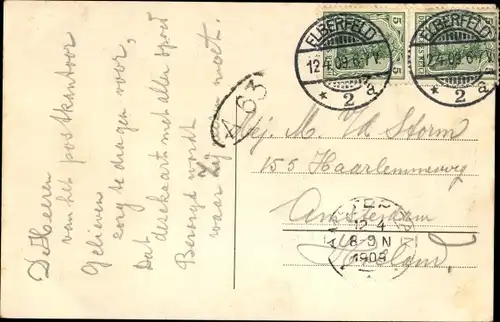 De Heeren
van het postkantoor
Gelieven
zorg te dragen voor,
Dat
deze kaart met aller spoed
Bezorgd wordt
waar Zij wezen moet.
463
ELBERFELD
12.4.09.6-7V.
* 2 a
ELBERFELD
12.4.09.6-7V.
* 2 a
5 5
Mej. M. Vd Storm
155 Haarlemmerweg
Amsterdam
Holland,
12-4
8-9 N
1909